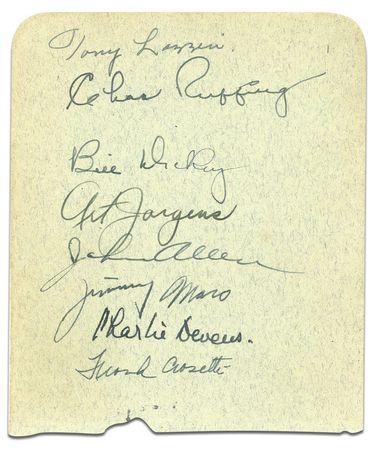 Tony Lazzeri
Chas Ruffing
Bill Dickey
Art Jorgens
John Allen
Jimmy
Charlie Devens.
Frank Crosetti